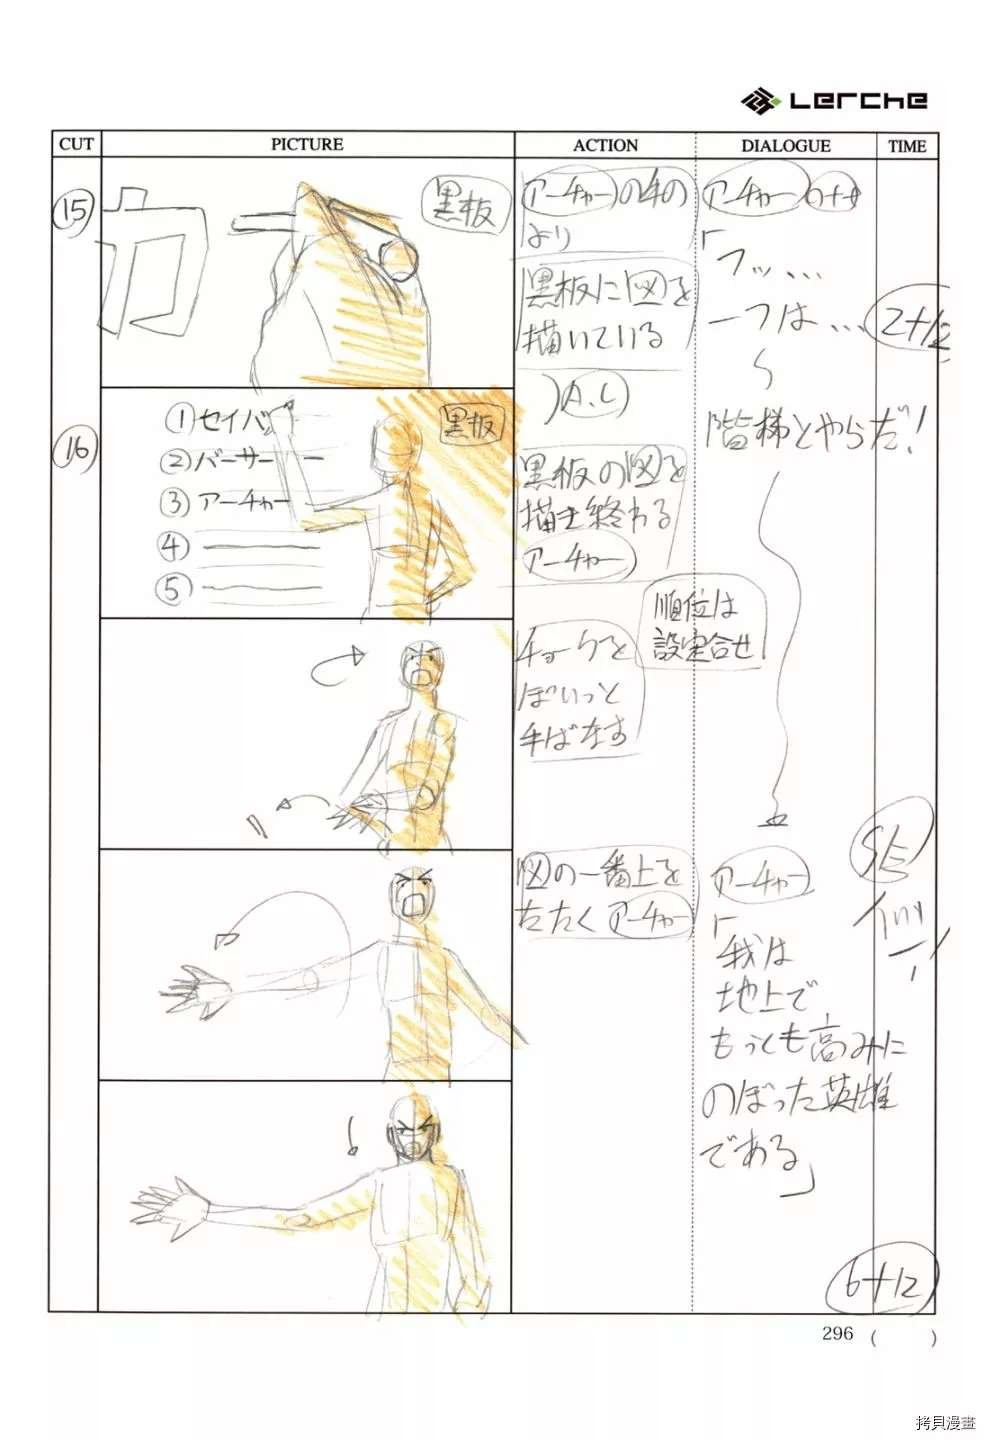 Lerche
CUT
PICTURE
ACTION
DIALOGUE
TIME
15
黒板
アーチャーの手の
より
黒板に図を
描いている
アーチャー
「フッ、、、
一つは...
2+12
16
①セイバ
②バーサーー
③アーチャー
④
⑤
黒板
黒板の図を
描き終わる
アーチャー
階梯とやらだ!
順位は
設定合せ
チョークを
ぽいっと
手ばなす
図の一番上を
たたくアーチャー
アーチャー
「我は
地上で
もっとも高みに
のぼった英雄
である」
6+12
296 ( )
拷貝漫畫